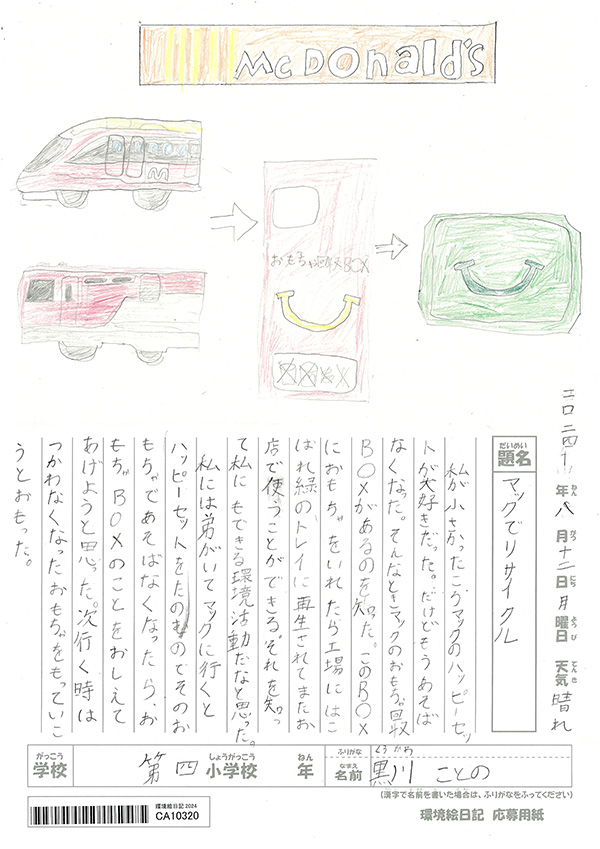 McDonald's
おもちゃ回収BOX
二〇二四年八月十二日月曜日 天気 晴れ
ねん がつ にち ようび てんき
だいめい
題名 マックでリサイクル
私が小さかったころマックのハッピーセッ
トが大好きだった。だけどもうあそば
なくなった。そんなときマックのおもちゃ回収
BOXがあるのを知った。このBOX
におもちゃをいれたら工場にはこ
ばれ緑のトレイに再生されてまたお
店で使うことができる。それを知っ
て私にもできる環境活動だなと思った。
私には弟がいてマックに行くと
ハッピーセットをたのむのでそのお
もちゃであそばなくなったら、お
もちゃBOXのことをおしえて
あげようと思った。次行く時は
つかわなくなったおもちゃをもっていこ
うとおもった。
がっこう しょうがっこう ねん
学校 第四小学校 年
ふりがな くろかわ
なまえ
名前 黒川 ことの
(漢字で名前を書いた場合は、ふりがなをふってください)
環境絵日記2024
CA10320
環境絵日記 応募用紙